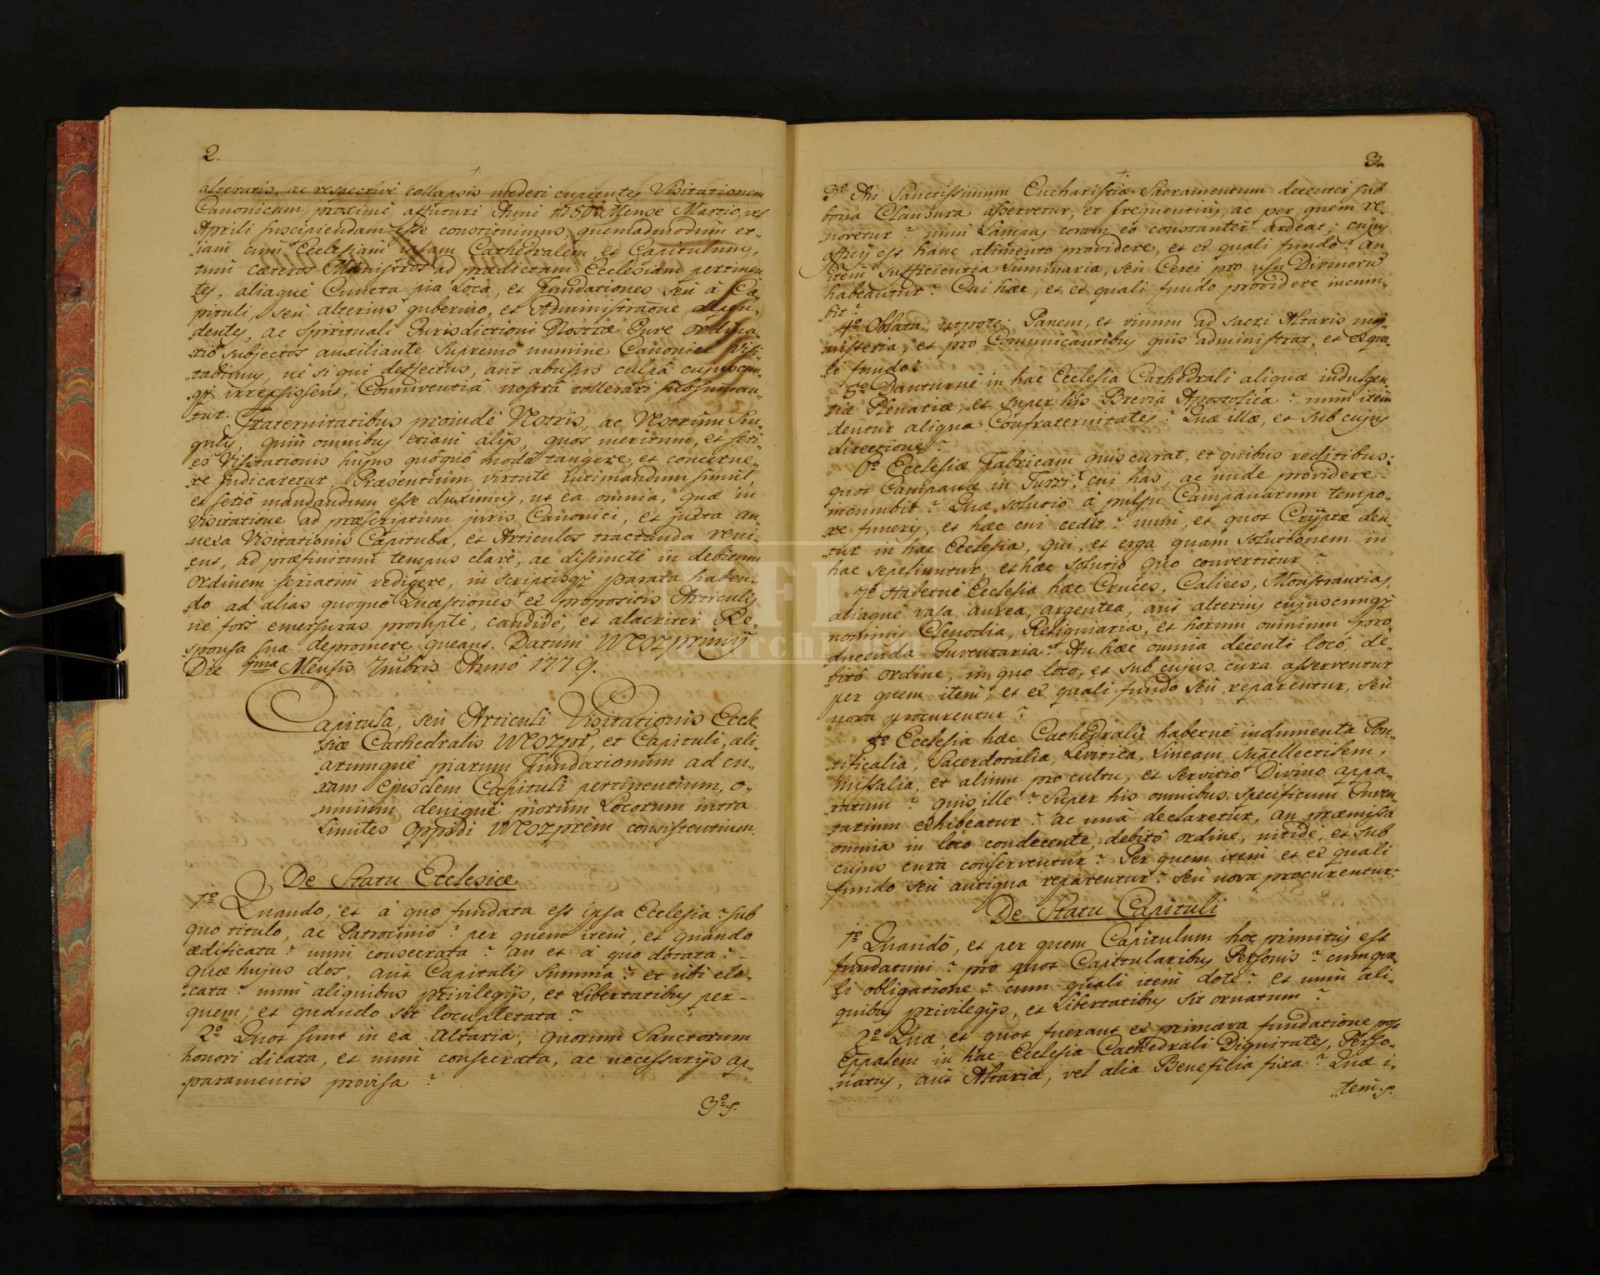 2.
alteratis, ac respective collapsis mederi cupientes Visitationem
Canonicam proximè affuturi Anni 1780 Mense Martio, vel
Aprili suscipiendam esse constituimus, quemadmodum et-
iam cum Ecclesiam ipsam Cathedralem, et Capitulum,
tum cæteros Ministros ad prædictam Ecclesiam pertinen-
tes, aliaque Cuncta pia Loca, et Fundationes seu à Ca-
pituli, seu alterius guberno, et Administraõne depen-
dentes, ac Spirituali Jurisdictioni Nostræ Jure ordina-
rio subjectos auxiliante Supremo numine Canonicè visi-
tabimus, nè si qui deffectus, aut abusus culpâ cujuscun-
qȝ irrepsissent, Conniventiâ nostrâ tollerari præsuman-
tur. Fraternitatibus proinde Vestris, ac Vestrûm Sin-
gulis, quin omnibus etiam alijs, quos meritum, et seri-
es Visitationis hujus quôquô modô tangere, et concerne-
re judicaretur, Præsentium virtute intimandum simul,
et seriô mandandum esse duximus, ut ea omnia, quæ in
Visitatione ad præscriptum juris Canonici, et juxta an-
nexa Visitationis Capitula, et Articulos tractanda veni-
ent, ad præfinitum tempus clarè, ac distinctè in debitum
Ordinem seriatim redigere, in scriptisqȝ parata haben-
do ad alias quoque Quæstiones ex propositis Articulis
nè fors emersuras promptè, candidè, et alacriter Re-
sponsa sua depromere queant. Datum Weszprimij
Die 7ma Mensis Xmbris Anno 1779.
Capitula, seu Articuli Visitationis Eccle-
siæ Cathedralis Weszpr, et Capituli, ali-
arumque piarum Fundationum ad cu-
ram Ejusdem Capituli pertinentium, o-
mnium denique piorum Locorum intra
Limites Oppidi Weszprim consistentium.
De Statu Ecclesiæ
1o Quando, et à quo fundata est ipsa Ecclesia? sub
quo titulo, ac Patrocinio? per quem item, et quando
ædificata? num consecrata? an et à quo dotata?
quæ hujus dos, aut Capitalis Summa? et ubi elo-
cata? num aliquibus privilegijs, et Libertatibus per
quem, et quando sit locupletata?
2o Quot sunt in ea Altaria, quorum Sanctorum
honori dicata, et num consecrata, ac necessarijs ap-
paramentis provisa?
3o
3.
3o An Sanctissimum Eucharistiæ Sacramentum decenter sub
bona Clausura asservetur, et frequentius, ac per quem re-
novetur? num Lampas coram eo constanter ardeat; cujus
officij est hanc alimento providere, et ex quali fundo? an
item sufficientia Luminaria, seu Cerei pro usu Divinorum
habeantur? Cui hæc, et ex quali fundo providere incum-
bit?
4o Oblata, utpote Panem, et vinum ad sacri Altaris mi-
nisteria, et pro Communicantibus quis administrat, et ex qua-
li fundo?
5o Danturne in hac Ecclesia Cathedrali aliquæ indulgen-
tiæ Plenariæ, et super his Brevia Apostolica? num item
dentur aliqua Confraternitates? Quæ illæ, et sub cujus
directione?
6o Ecclesiæ Fabricam quis curat, et quibus reditibus;
quot Campanæ in Turri, cui has, ac unde providere
incumbit? Quæ solutio à pulsu Campanarum tempo-
re funeris, et hæc cui cedit? num, et quot Cryptæ den-
tur in hac Ecclesia, qui, et erga quam solutionem in
hac sepeliuntur, et hæc solutio quo convertitur?
7o Habetne Ecclesia hæc Cruces, Calices, Monstrantias,
aliaque vasa aurea, argentea, aut alterius cujuscunqȝ
nominis Clenodia, Reliquiaria, et horum omnium pro-
ducenda Inventaria? An hæc omnia decenti locô, de-
bitô ordine, in quo loco, et sub cujus cura asserventur
per quem item, et ex quali fundo seu reparentur, seu
nova procurentur?
8o Ecclesia hæc Cathedralis habetne indumenta Pon-
tificalia, Sacerdotalia, Levitica, Lineam Supellectilem,
Missalia, et alium pro cultu, et servitio Divino appa-
ratum? quis ille? Super his omnibus specificum Inven-
tarium exhibeatur? ac unà declaretur, an præmissa
omnia in loco condecente, debitô ordine, nitidè, et sub
cujus cura conserventur? Per quem item et ex quali
fundo seu antiqua reparentur? seu nova procurentur?
De Statu Capituli
1o Quandô, et per quem Capitulum hoc primitùs est
fundatum? pro quot Capitularibus Personis? cum qua-
li obligatione? cum quali item dote? et num ali-
quibus privilegijs, et Libertatibus sit ornatum?
2o Quæ, et quot fuerant ex primæva fundatione post
Eppalem in hac Ecclesia Cathedrali Dignitates, Perso-
natus, aut Altaria, vel alia Beneficia fixa? Quæ i-
tem